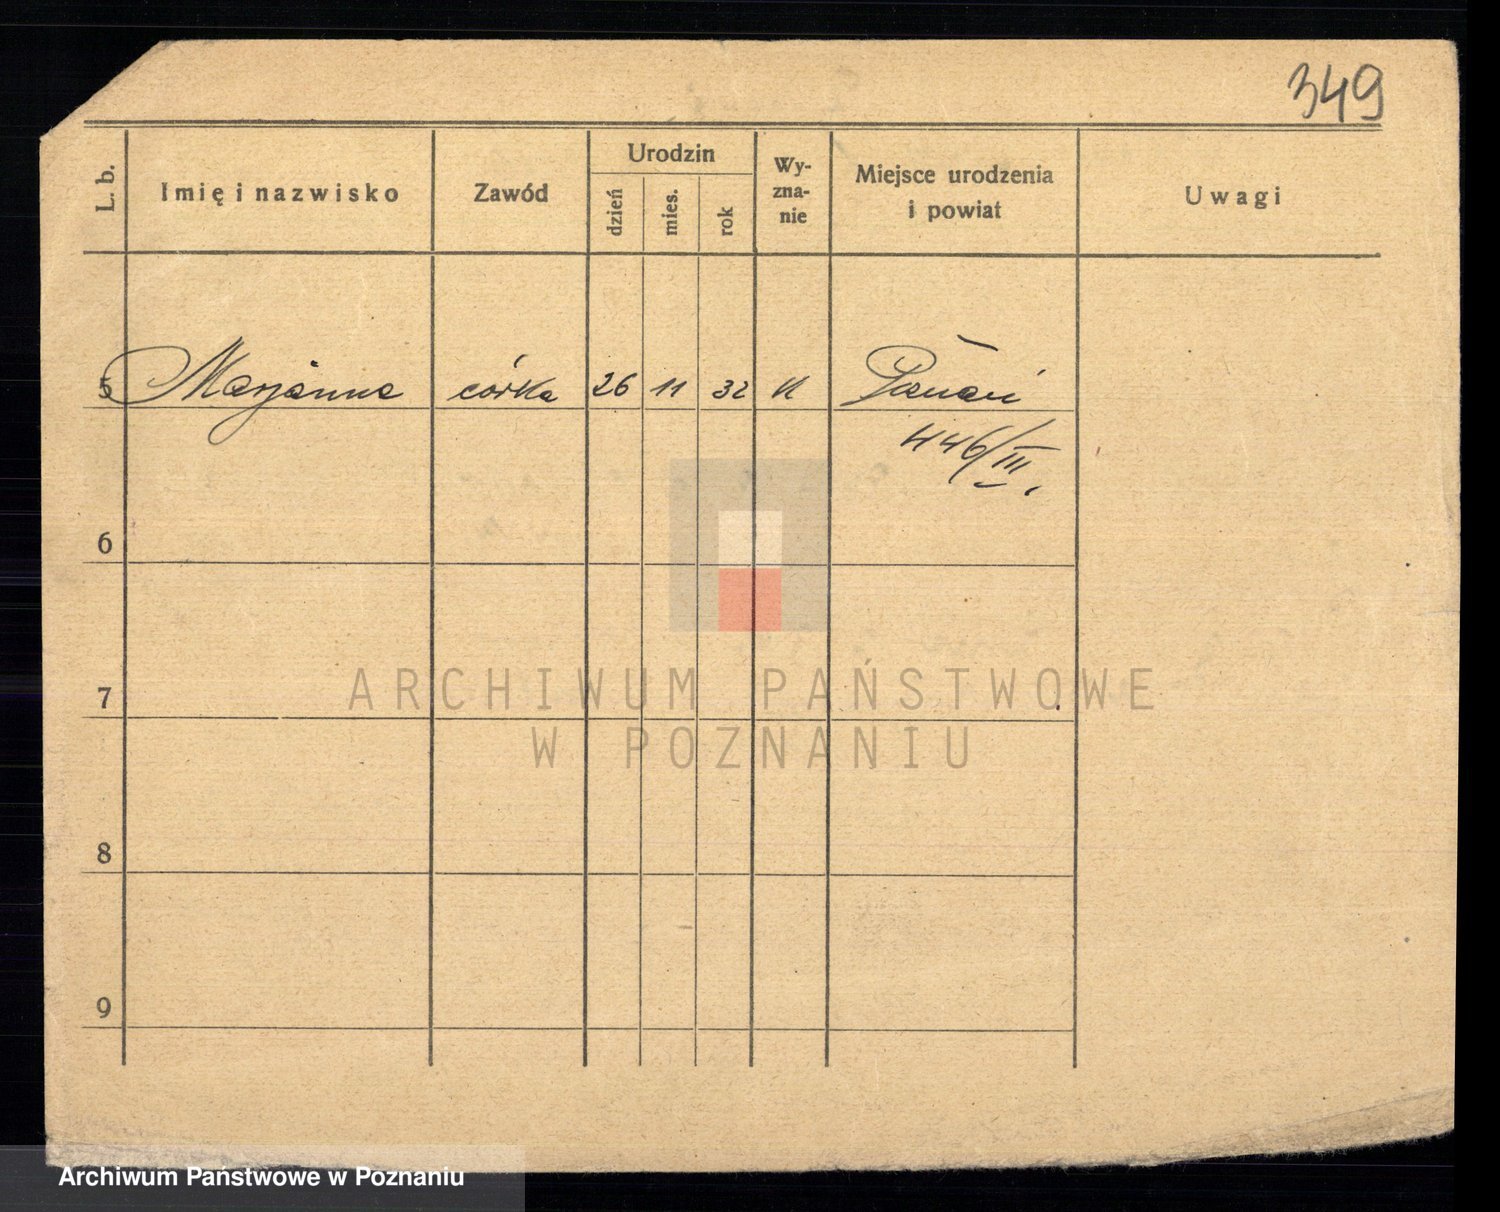 349
L. b.
Imię i nazwisko
Zawód
Urodzin
dzień
mies.
rok
Wy-
zna-
nie
Miejsce urodzenia
i powiat
Uwagi
5 Marjanna córka 26 11 32 K Poznań
446/III.
6
7
8
9
ARCHIWUM PAŃSTWOWE
W POZNANIU
Archiwum Państwowe w Poznaniu